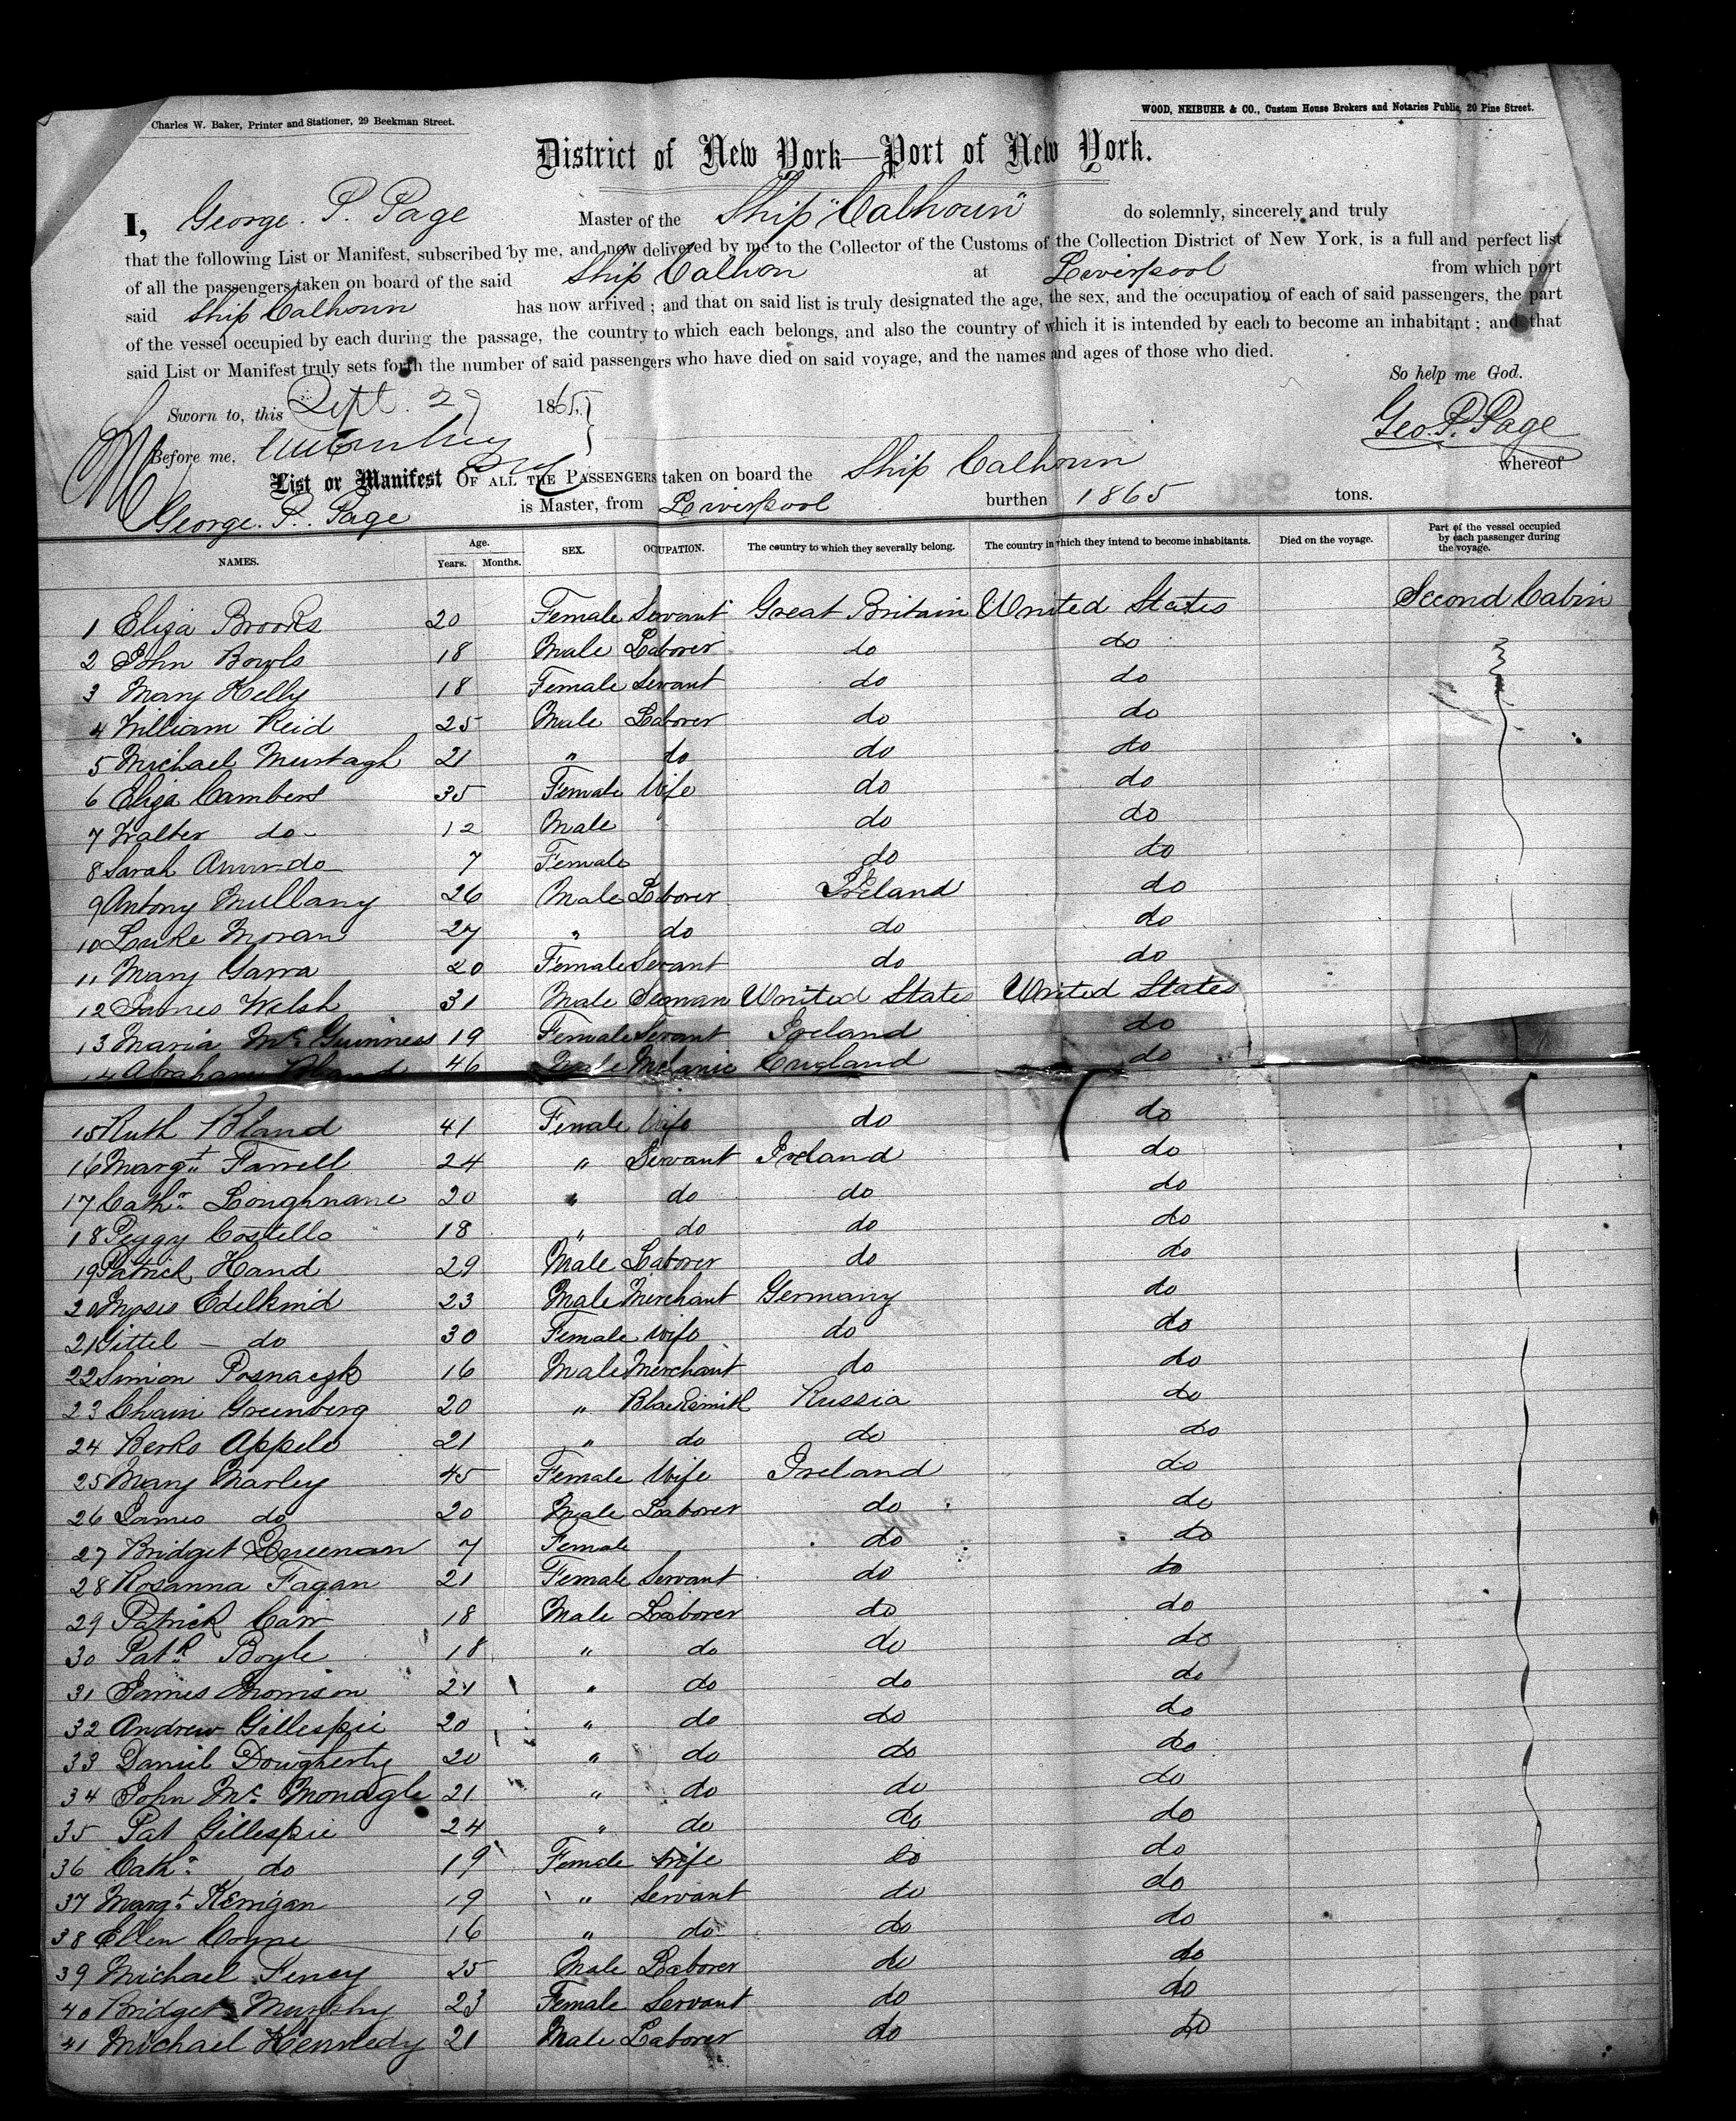 Charles W. Baker, Printer and Stationer, 29 Beekman Street.
WOOD, NEIBUHR & CO., Custom House Brokers and Notaries Public, 20 Pine Street.
District of New York—Port of New York.
I, George. P. Page Master of the Ship "Calhoun" do solemnly, sincerely and truly
that the following List or Manifest, subscribed by me, and now delivered by me to the Collector of the Customs of the Collection District of New York, is a full and perfect list
of all the passengers taken on board of the said Ship Calhon at Liverpool from which port
said Ship Calhoun has now arrived; and that on said list is truly designated the age, the sex, and the occupation of each of said passengers, the part
of the vessel occupied by each during the passage, the country to which each belongs, and also the country of which it is intended by each to become an inhabitant; and that
said List or Manifest truly sets forth the number of said passengers who have died on said voyage, and the names and ages of those who died.
So help me God.
Sworn to, this Sept. 29 1865.
Geo. P. Page
Before me,
List or Manifest OF ALL THE PASSENGERS taken on board the Ship Calhoun whereof
George. P. Page is Master, from Liverpool burthen 1865 tons.
NAMES. Age. Years. Months. SEX. OCUPATION. The country to which they severally belong. The country in which they intend to become inhabitants. Died on the voyage. Part of the vessel occupied by each passenger during the voyage.
1 Eliza Brooks 20 Female Servant Great Britain United States Second Cabin
2 John Bowls 18 Male Laborer do do
3 Mary Kelly 18 Female Servant do do
4 William Reid 25 Male Laborer do do
5 Michael Murtagh 21 " do do do
6 Eliza Cambers 35 Female Wife do do
7 Walter do 12 Male do do
8 Sarah Ann do 7 Female do do
9 Antony Mullany 26 Male Laborer Ireland do
10 Luke Moran 27 " do do do
11 Mary Garra 20 Female Servant do do
12 James Welsh 31 Male Seman United States United States
13 Maria Mc Guinness 19 Female Servant Ireland do
14 Abraham Bland 46 Male Mechanic England do
15 Ruth Bland 41 Female Wife do do
16 Margt Farrell 24 " Servant Ireland do
17 Cathn Loughnane 20 " do do do
18 Peggy Costello 18 " do do do
19 Patrick Hand 29 Male Laborer do do
20 Moses Edelkind 23 Male Merchant Germany do
21 Gittel — do 30 Female Wife do do
22 Simon Posnaczk 16 Male Merchant do do
23 Chaim Greenberg 20 " Blacksmith Russia do
24 Berks Appele 21 " do do do
25 Mary Marley 45 Female Wife Ireland do
26 James do 20 Male Laborer do do
27 Bridget 7 Female do do
28 Rosanna Fagan 21 Female Servant do do
29 Patrick Carr 18 Male Laborer do do
30 Patk Boyle 18 " do do do
31 James Thomson 24 " do do do
32 Andrew Gillespie 20 " do do do
33 Daniel Dougherty 20 " do do do
34 John Mc Monagle 21 " do do do
35 Pat Gillespie 24 " do do do
36 Cathn do 19 Female Wife do do
37 Margt Kerrigan 19 " Servant do do
38 Ellen Coyne 16 " do do do
39 Michael Feney 25 Male Laborer do do
40 Bridget Murphy 23 Female Servant do do
41 Michael Kennedy 21 Male Laborer do do